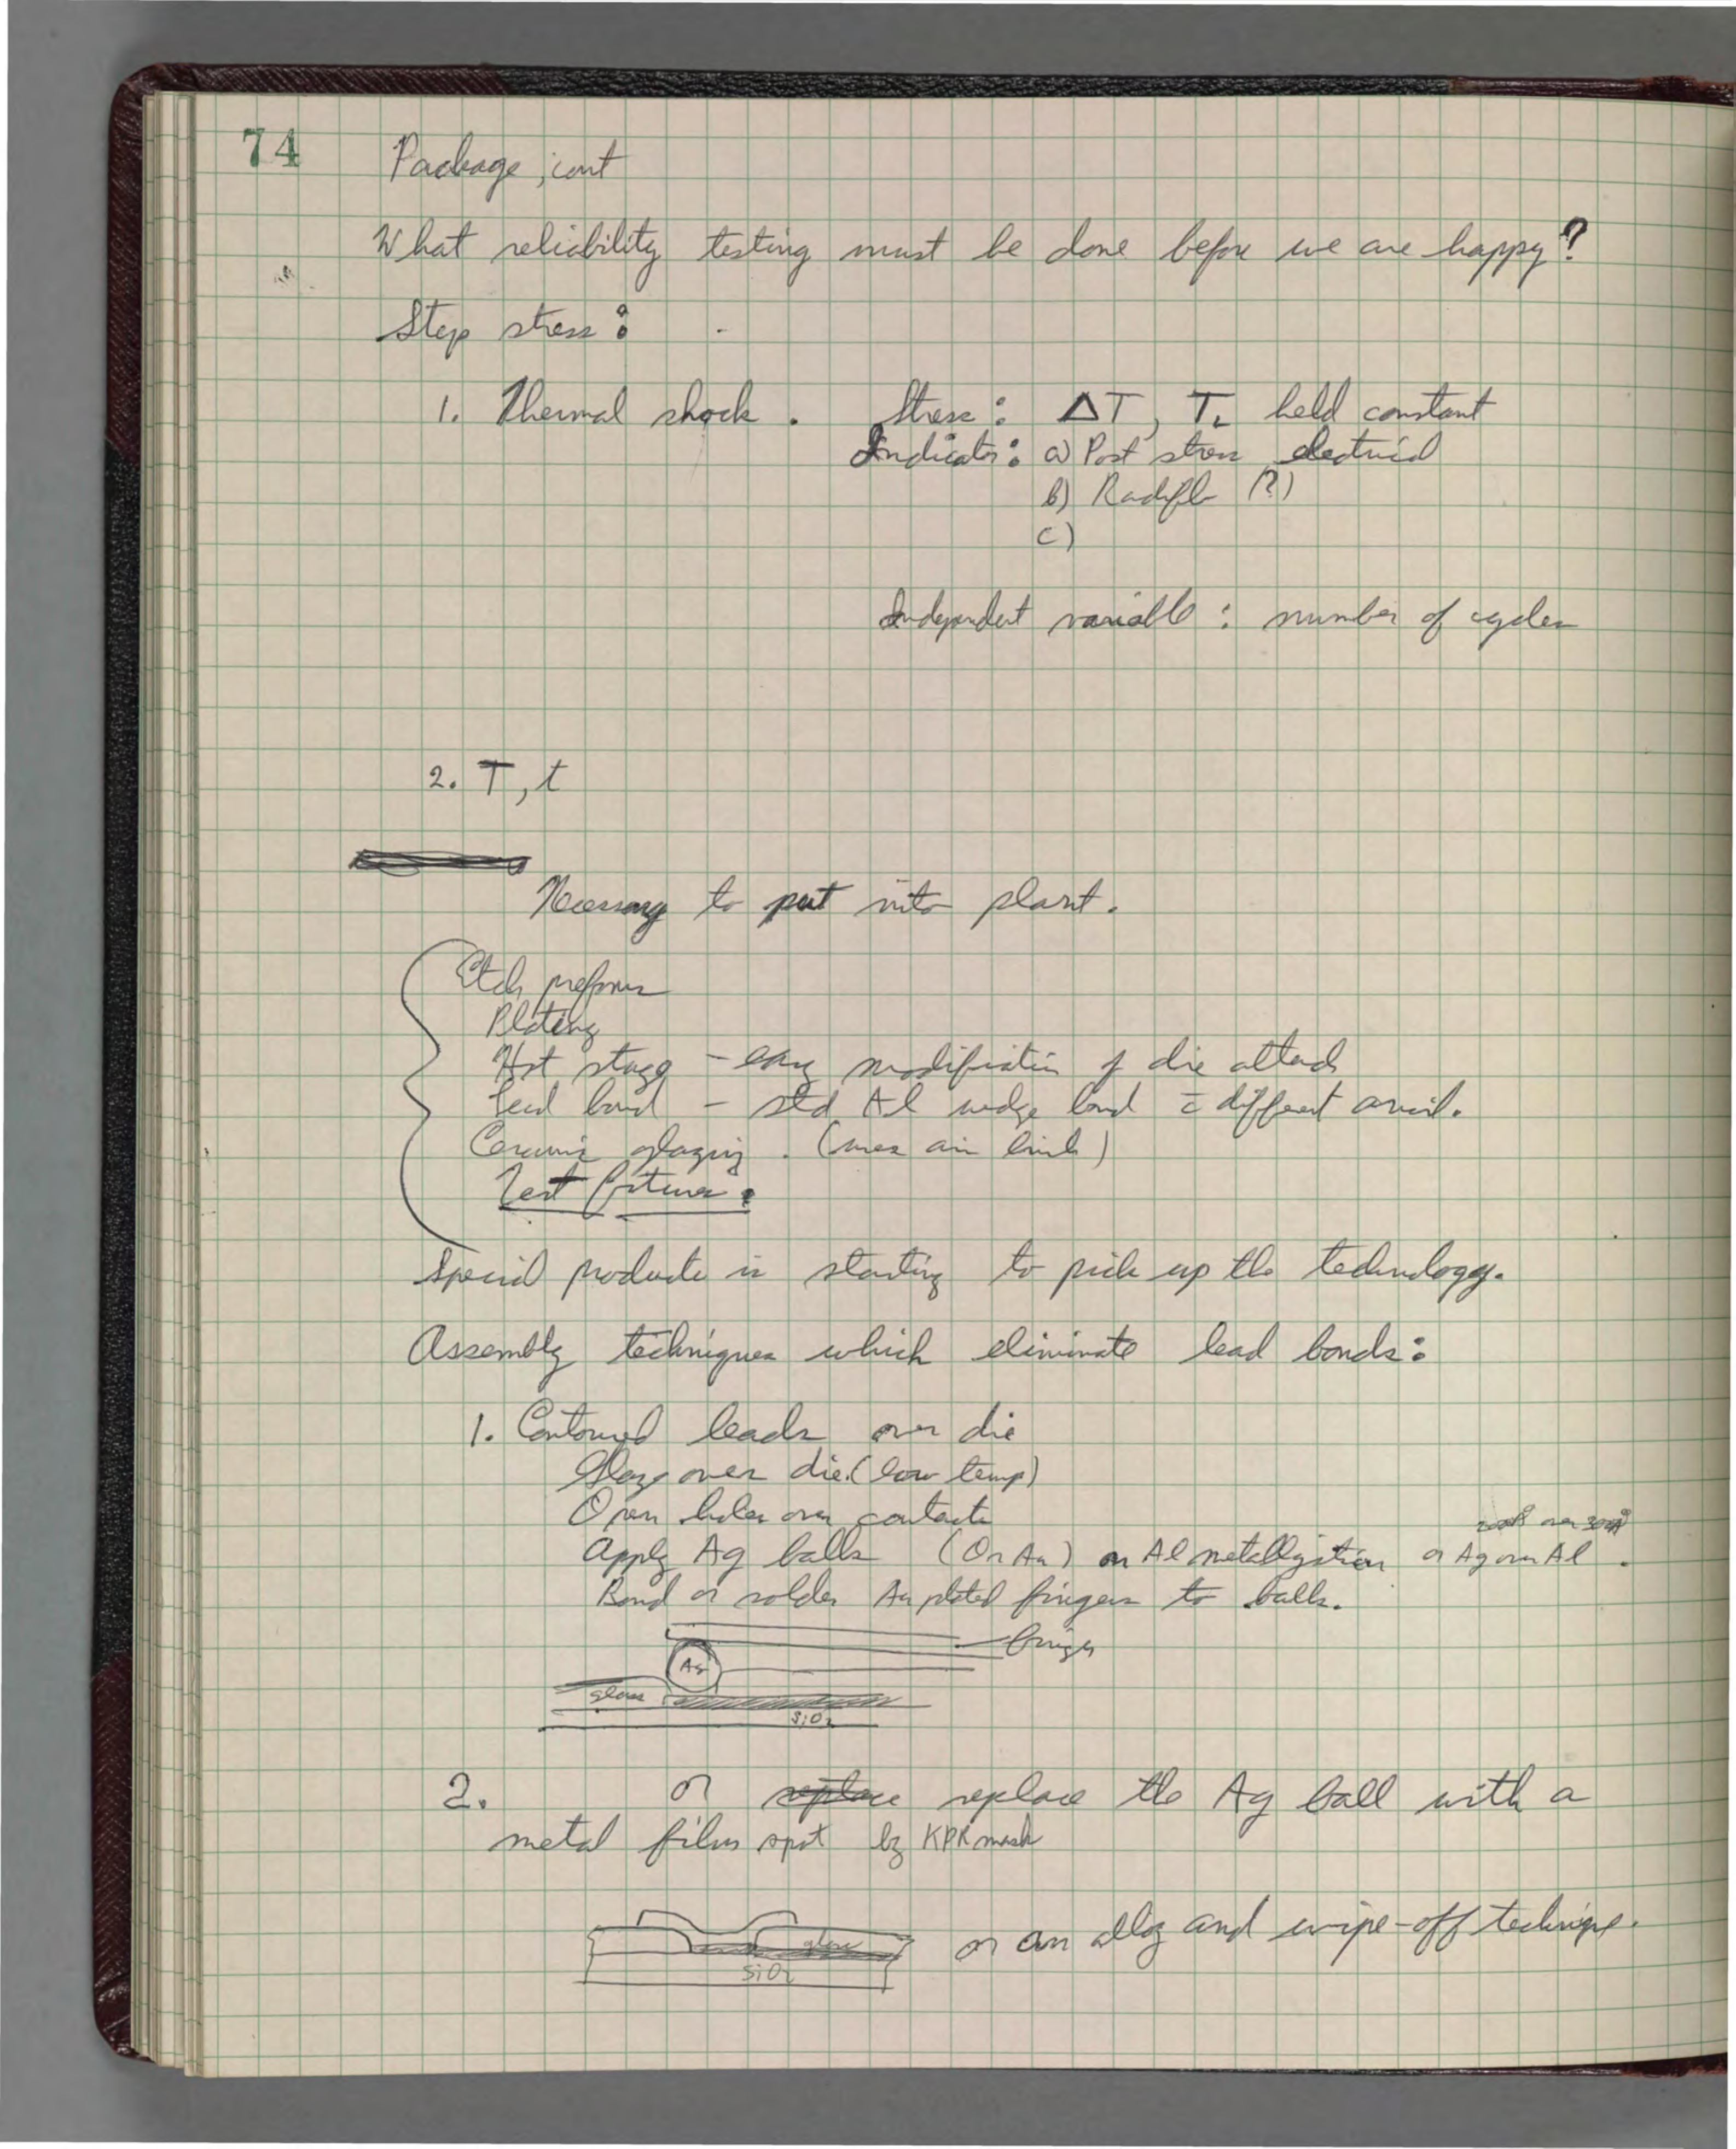 74
Package, cont
What reliability testing must be done before we are happy?
Step stress:
1. Thermal shock. Stress: ΔT, T held constant
Indicator: a) Post stress electrical
b) Radiflo (?)
c)
Independent variable: number of cycles
2. T, t
Necessary to put into plant.
Etch preforms
Plating
Hot stage - easy modification of die attach
Lead bond - std Al wedge bond c̄ different anvil.
Ceramic glazing. (uses air )
Test fixtures.
Special products is starting to pick up the technology.
Assembly techniques which eliminate lead bonds:
1. Contoured leads over die
Glass over die. (low temp)
Open holes over contacts
200Å over 300Å
Apply Ag balls (Or Au) on Al metallization or Ag over Al.
Bond or solder Au plated fingers to balls.
finger
Ag
glass
SiO2
2. or replace replace the Ag ball with a
metal film spot by KPR mask
glass
SiO2
or an alloy and wipe-off technique.